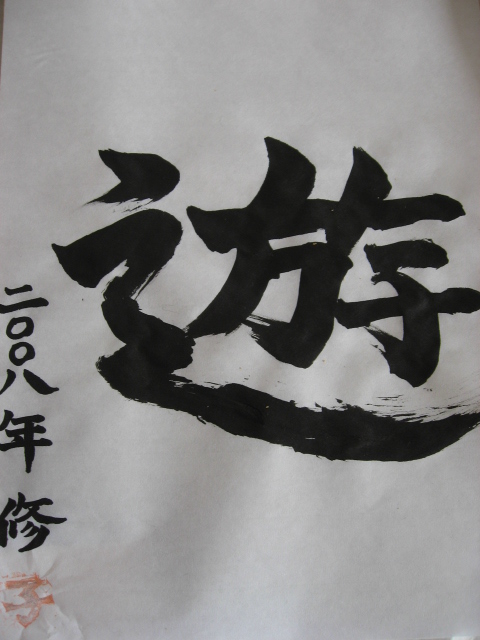 遊
二〇〇八年 修
子